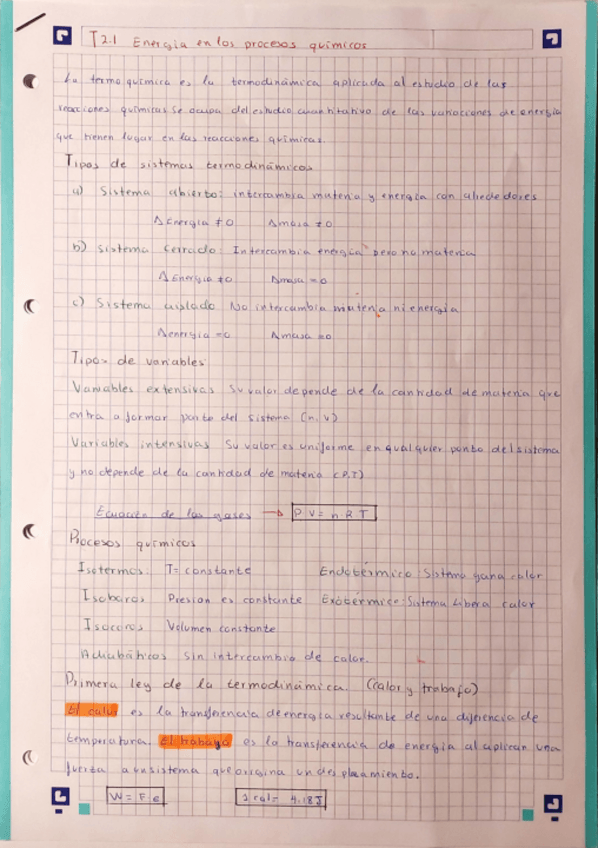 T2.1 Energia en los procesos químicos
La termoquimica es la termodinámica aplicada al estudio de las
reacciones químicas Se ocupa del estudio cuantitativo de las variaciones de energía
que tienen lugar en las reacciones químicas.
Tipos de sistemas termodinámicos
a) Sistema abierto: intercambia materia y energía con alrededores
Δ Energía ≠ 0 Δmasa ≠ 0
b) Sistema Cerrado: Intercambia energía pero no materia
Δ Energia ≠ 0 Δmasa = 0
c) Sistema aislado No intercambia materia ni energia
Δenergia = 0 Δmasa = 0
Tipos de variables
Variables extensivas Su valor depende de la cantidad de materia que
entra a formar parte del sistema (n, V)
Variables intensivas Su valor es uniforme en qualquier punto del sistema
y no depende de la cantidad de materia (P,T)
Ecuación de los gases → P.V = n.R.T
Procesos químicos
Isotermos: T = constante Endotérmico: Sistema gana calor
Isobaros Presion es constante Exotérmico: Sistema libera calor
Isocoros Volumen constante
Adiabáticos Sin intercambio de calor.
Primera ley de la termodinámica. (calor y trabajo)
El calor es la transferencia de energía resultante de una diferencia de
temperatura. El trabajo es la transferencia de energia al aplicar una
fuerza a un sistema que origina un desplazamiento.
W = F.e 1 cal = 4.18J